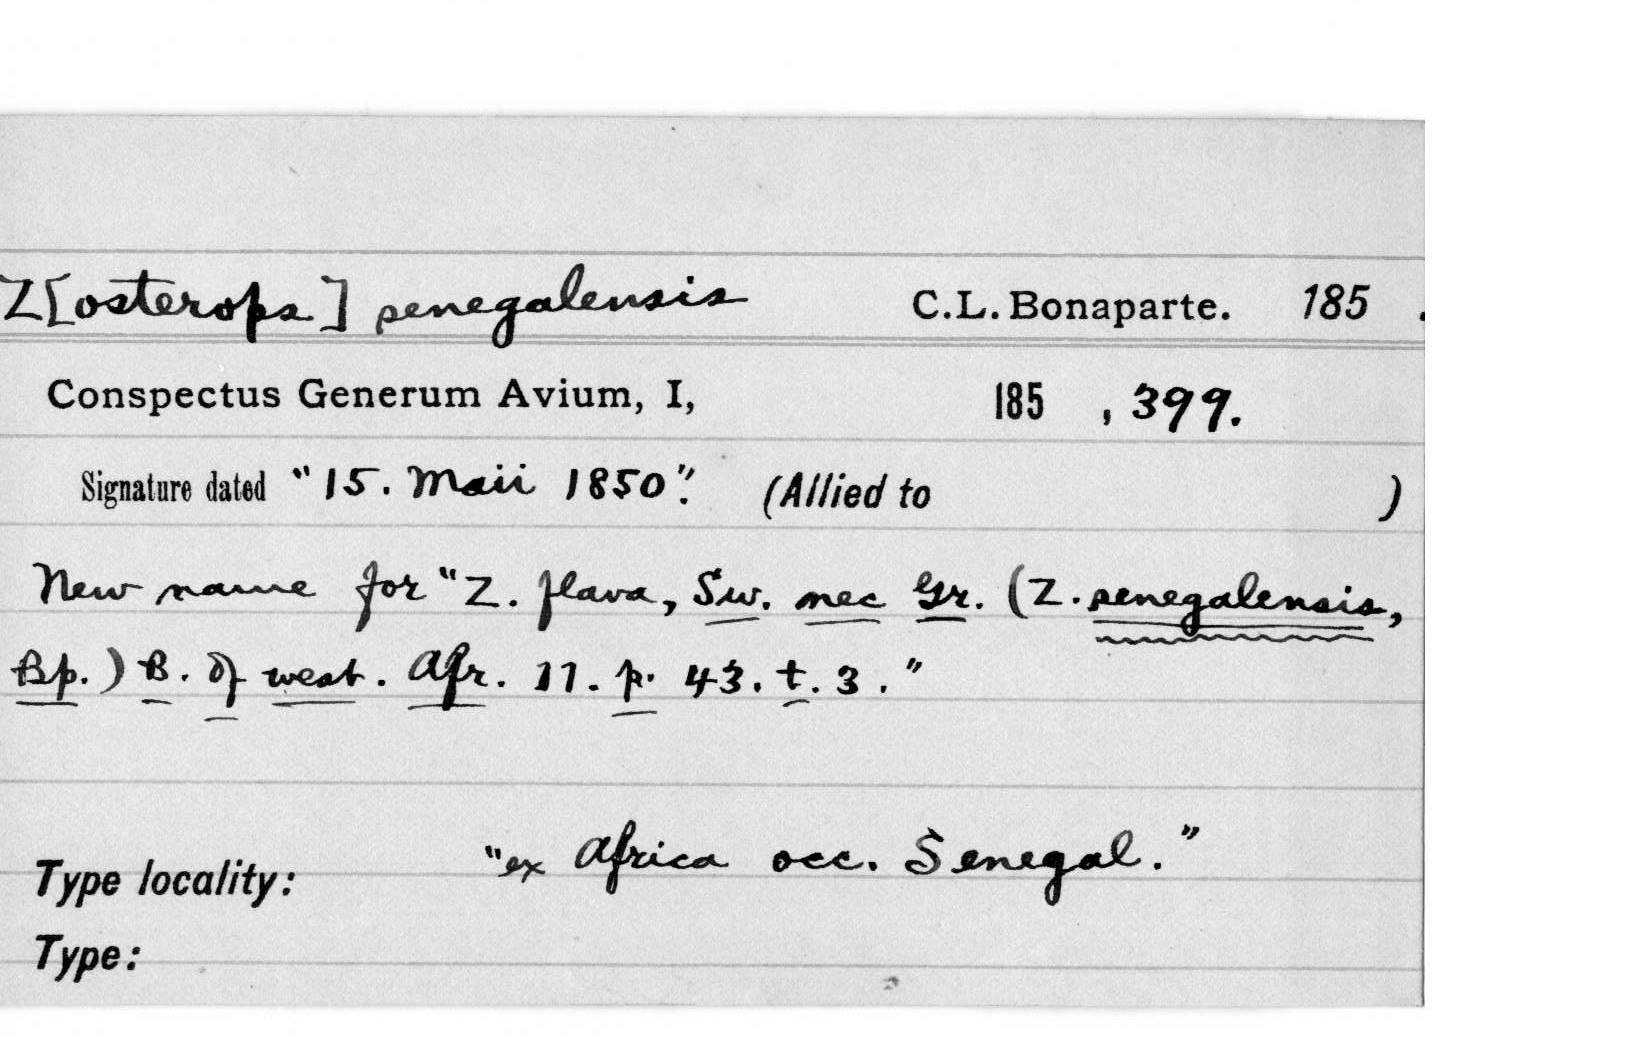 Z[osterops] senegalensis C.L. Bonaparte. 185 .
Conspectus Generum Avium, I, 185 , 399.
Signature dated "15. Maii 1850". (Allied to )
New name for "Z. flava, Sw. nec Gr. (Z. senegalensis,
Bp.) B. of west. Afr. 11. p. 43. t. 3."
Type locality: "ex Africa occ. Senegal."
Type: